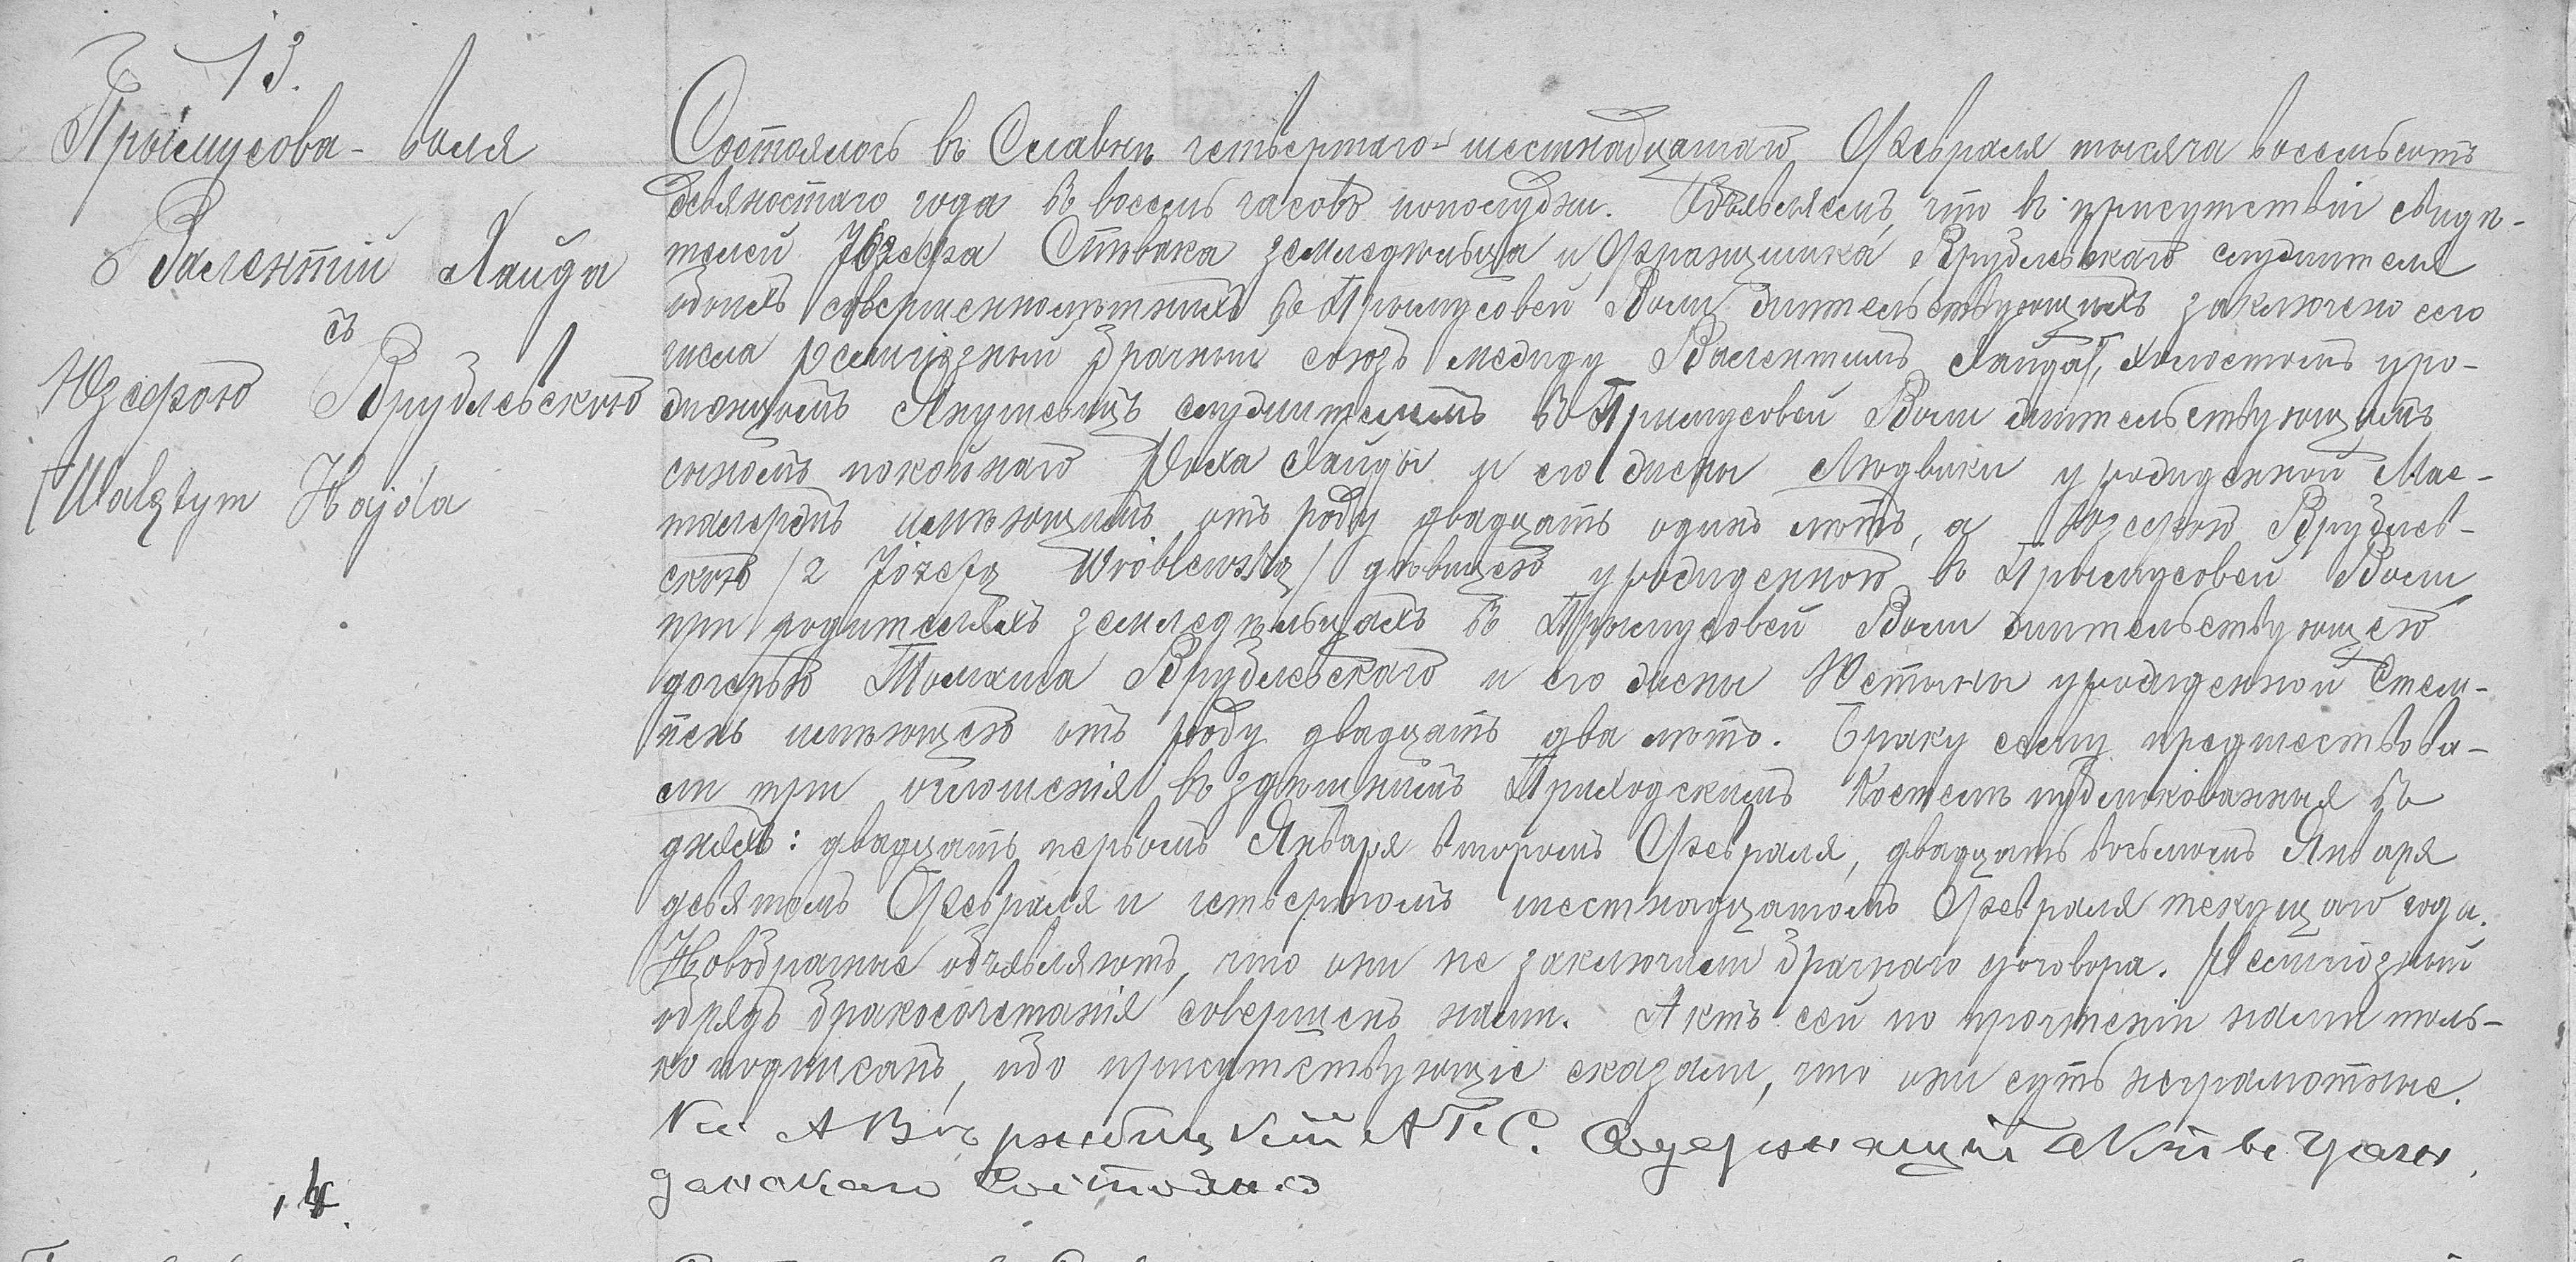 13.
Прымусова-воля
Валентій Хайда
съ
Юзефою Врублевскою
/Walętym Hajda
Состоялось въ Славнѣ четвертаго-шестнадцатаго Февраля тысяча восемьсотъ
девяностаго года въ восемь часовъ пополудни. Объявляемъ, что въ присутствіи свидѣ-
телей Юзефа Стввака земледѣльца и Францишка Врублевскаго служителя
обоихъ совершеннолѣтнихъ въ Прымусовей Воли жительствующихъ заключено сего
числа религіозный брачный союзъ между Валентимъ Хайда, холостымъ уро-
жденцомъ служителемъ въ Примусовей Воли жительствующимъ
сыномъ покойнаго Роха Хайды и его жены Людвики урожденной Мас-
талержъ имѣющимъ отъ роду двадцать одинъ лѣтъ, а Юзефою Врублев-
скою /z Józefą Wróblewską/ дѣвицею урожденною въ Прымусовей Воли
при родителяхъ земледѣльцахъ въ Прымусовей Воли жительствующею
дочерью Томаша Врублевскаго и его жены Юстыны урожденной Стем-
пень имѣющею отъ роду двадцать два лѣтъ. Браку сему предшествова-
ли три оглошенія въ здѣшнимъ Приходскимъ Костелѣ публикованныя въ
дняхъ: двадцать первомъ Января второмъ Февраля, двадцать восьмомъ Января
девятомъ Февраля и четвертомъ шестнадцатомъ Февраля текущаго года.
Новобрачные объявляютъ, что они не заключили брачнаго уговора. Религіозный
обрядъ бракосочетанія совершенъ нами. Актъ сей по прочтеніи нами толь-
ко подписанъ, ибо присутствующіе сказали, что они суть неграмотные.
Кс. А П. С. Содержащій Акты Граж
данскаго Состоянія
14.